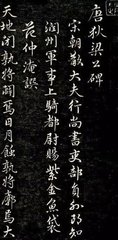 唐狄梁公碑
宋朝散大夫行尚書吏部員外郎知
潤州軍事上騎都尉賜紫金魚袋
范仲淹譔
天地閉孰將闢焉日月蝕孰將廓焉大